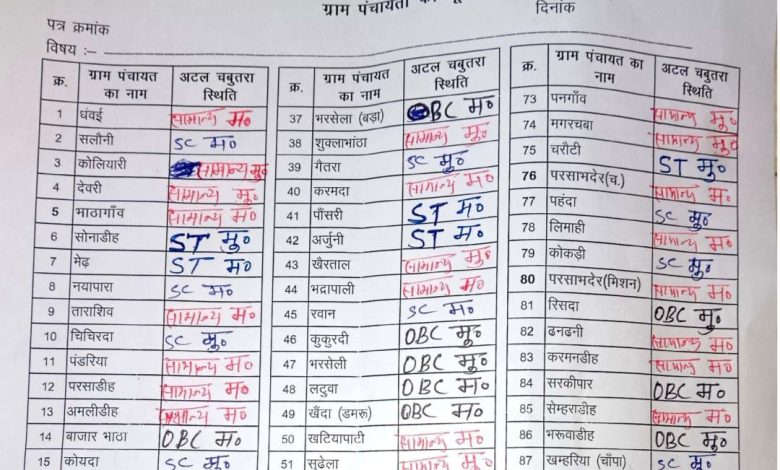 ग्राम पंचायतों
पत्र क्रमांक
दिनांक
विषय :–
क्र. ग्राम पंचायत का नाम अटल चबुतरा स्थिति
1 धंवई सामान्य म०
2 सलौनी SC म०
3 कोलियारी सामान्य मु०
4 देवरी सामान्य मु०
5 भाठागाँव सामान्य म०
6 सोनाडीह ST मु०
7 मेढ़ ST म०
8 नयापारा SC म०
9 ताराशिव सामान्य म०
10 चिचिरदा SC मु०
11 पंडरिया सामान्य म०
12 परसाडीह सामान्य म०
13 अमलीडीह सामान्य म०
14 बाजार भाठा OBC म०
15 कोयदा SC मु०
क्र. ग्राम पंचायत का नाम अटल चबुतरा स्थिति
37 भरसेला (बड़ा) OBC म०
38 शुक्लाभांठा सामान्य मु०
39 गैतरा SC मु०
40 करमदा सामान्य म०
41 पौंसरी ST म०
42 अर्जुनी ST म०
43 खैरताल सामान्य मु०
44 भद्रापाली सामान्य म०
45 रवान SC म०
46 कुकुरदी OBC मु०
47 भरसेली OBC म०
48 लटुवा OBC म०
49 खैंदा (डमरू) OBC म०
50 खटियापाटी सामान्य म०
51 सुढेला सामान्य म०
क्र. ग्राम पंचायत का नाम अटल चबुतरा स्थिति
73 पनगाँव सामान्य मु०
74 मगरचबा सामान्य मु०
75 चरौटी ST मु०
76 परसाभदेर(च.) सामान्य म०
77 पहंदा SC मु०
78 लिमाही सामान्य मु०
79 कोकड़ी SC मु०
80 परसाभदेर(मिशन) सामान्य म०
81 रिसदा OBC मु०
82 ढनढनी सामान्य म०
83 करमनडीह सामान्य म०
84 सरकीपार OBC म०
85 सेम्हराडीह सामान्य म०
86 भरूवाडीह OBC मु०
87 खम्हरिया (चाँपा) SC मु०